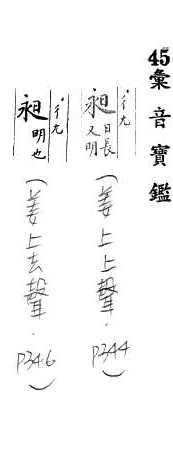 45彙音寶鑑
昶 日長又明
(姜上上聲.P344)
昶 明也
(姜上去聲.P346)